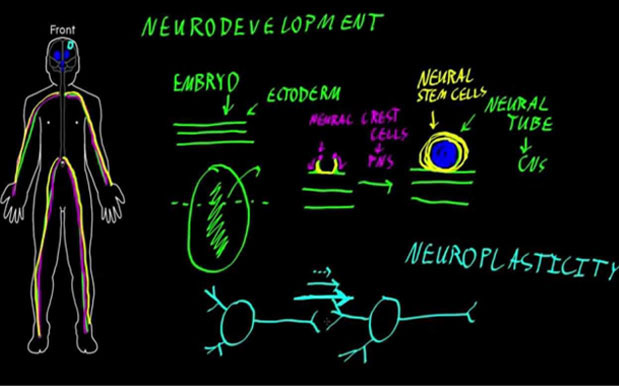 Front
NEURODEVELOPMENT
EMBRYO
ECTODERM
NEURAL CREST
CELLS
PNS
NEURAL
STEM CELLS
NEURAL
TUBE
CNS
NEUROPLASTICITY